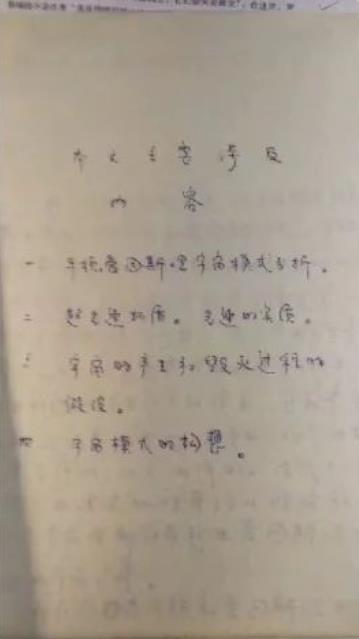 本文主要涉及
内容
一 爱因斯坦宇宙模式分析。
二 超光速物质。光速的实质。
三 宇宙的产生和毁灭过程的
假设。
四 宇宙模式的构想。